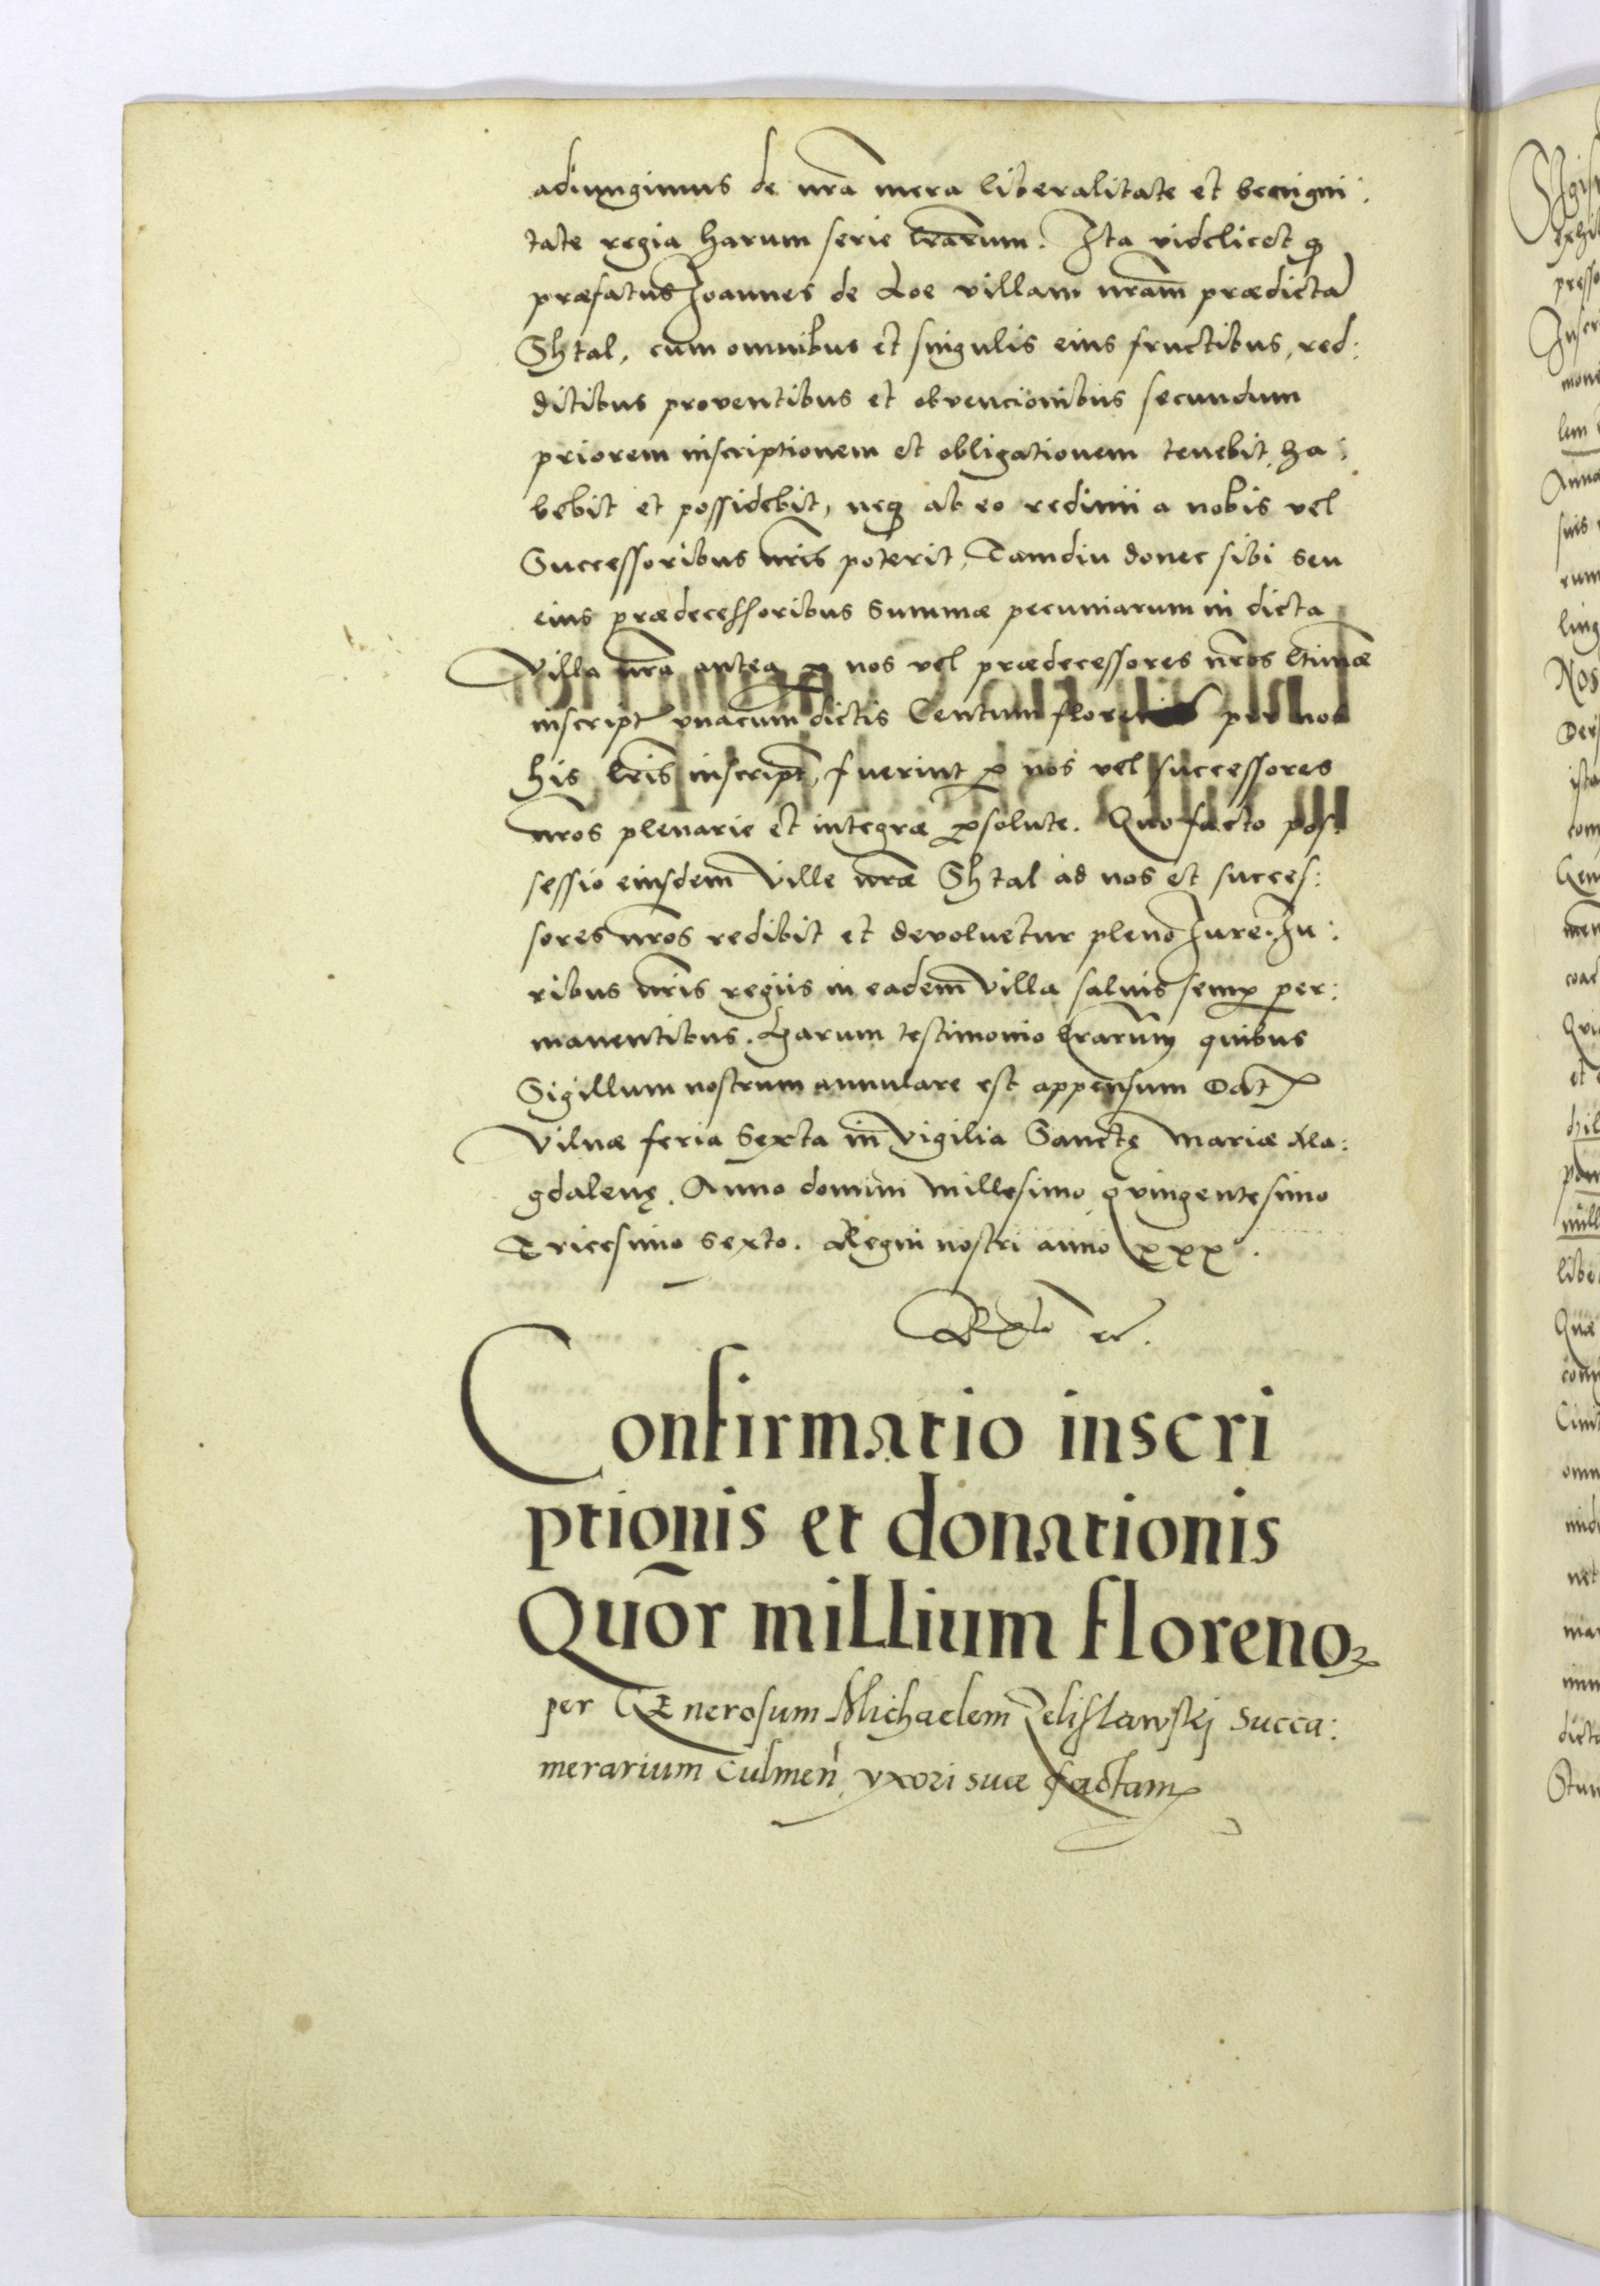 adiungimus de nr̃a mera liberalitate et benigni:
tate regia harum serie lr̃arum. Ita videlicet q̃
præfatus Joannes de Loe villam nr̃am prædictã
Shtal, cum omnibus et singulis eius fructibus, red:
ditibus proventibus et obvencionibus secundum
priorem inscriptionem et obligationem tenebit, ha:
bebit et possidebit, neq̃ ab eo redimi a nobis vel
Successoribus nr̃is poterit, Tamdiu donec sibi seu
eius prædecessoribus summæ pecuniarum in dicta
Villa nr̃a antea p nos vel prædecessores nr̃os ltimæ
inscript vnacum dictis Centum florenis per nos
his lr̃is inscript, fuerint p nos vel successores
nr̃os plenarie et integræ psolute. Quo facto pos:
sessio eiusdem Ville nr̃æ Shtal ad nos et succes:
sores nr̃os redibit et devoluetur pleno Jure. Ju:
ribus nr̃is regiis in eadem Villa saluis semp per:
manentibus. Harum testimonio lr̃arum quibus
Sigillum nostrum annulare est appensum Dat
Vilnæ feria Sexta in Vigilia Sanctę Mariæ Ma:
gdalenę. Anno domini Millesimo quingentesimo
Tricesimo Sexto. Regni nostri anno xxx.
Confirmatio inscri
ptionis et donationis
Quõr millium florenoꝝ
per GEnerosum Michaelem Zelislawskj Succa:
merarium Culmeñ, yxori suæ factam